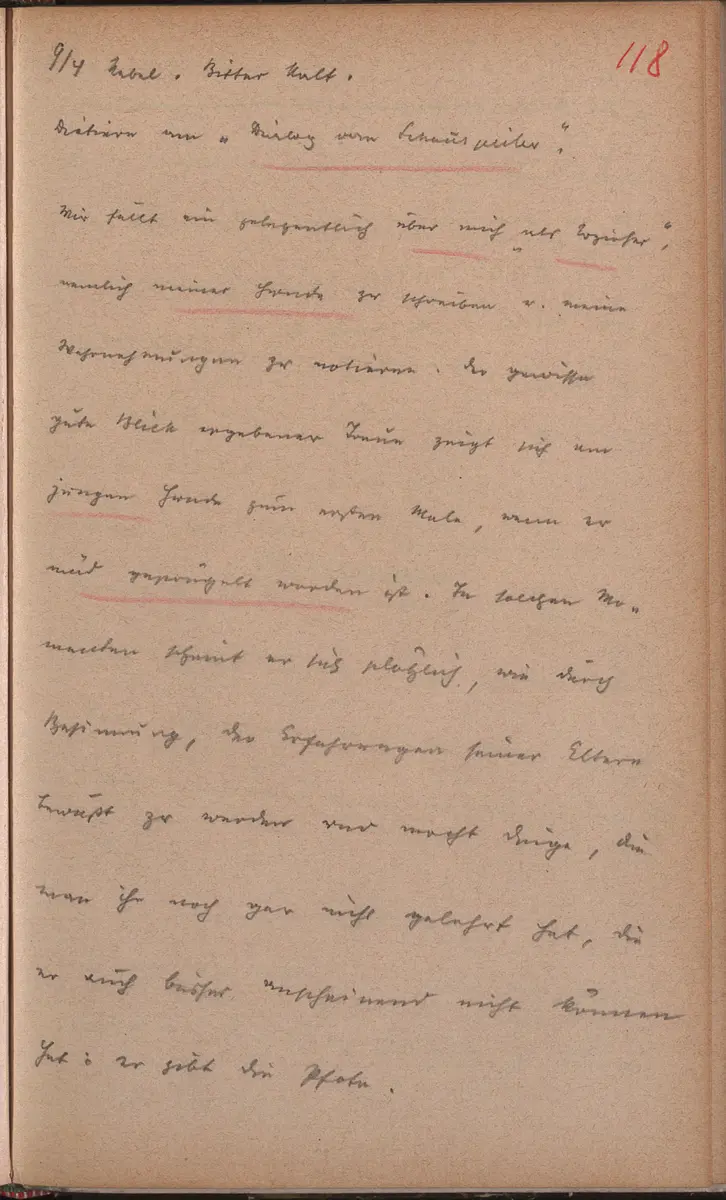 118
9/4 Nebel. Bitter Kalt.
Dictiere am „Dialog vom Schauspieler“.
Mir fällt ein gelegentlich über mich „als Erzieher“,
nemlich meiner Hunde zu schreiben u. meine
Wahrnehmungen zu notieren. Der gewisse
gute Blick ergebener Treue zeigt sich am
jungen Hunde zum ersten Male, wenn er
müd geprügelt worden ist. In solchen Mo-
menten scheint er sich plötzlich, wie durch
Besinnung, der Erfahrungen seiner Eltern
bewußt zu werden und macht Dinge, die
man ihn noch gar nicht gelehrt hat, die
er auch bisher anscheinend nicht können
hat: er gibt die Pfote.